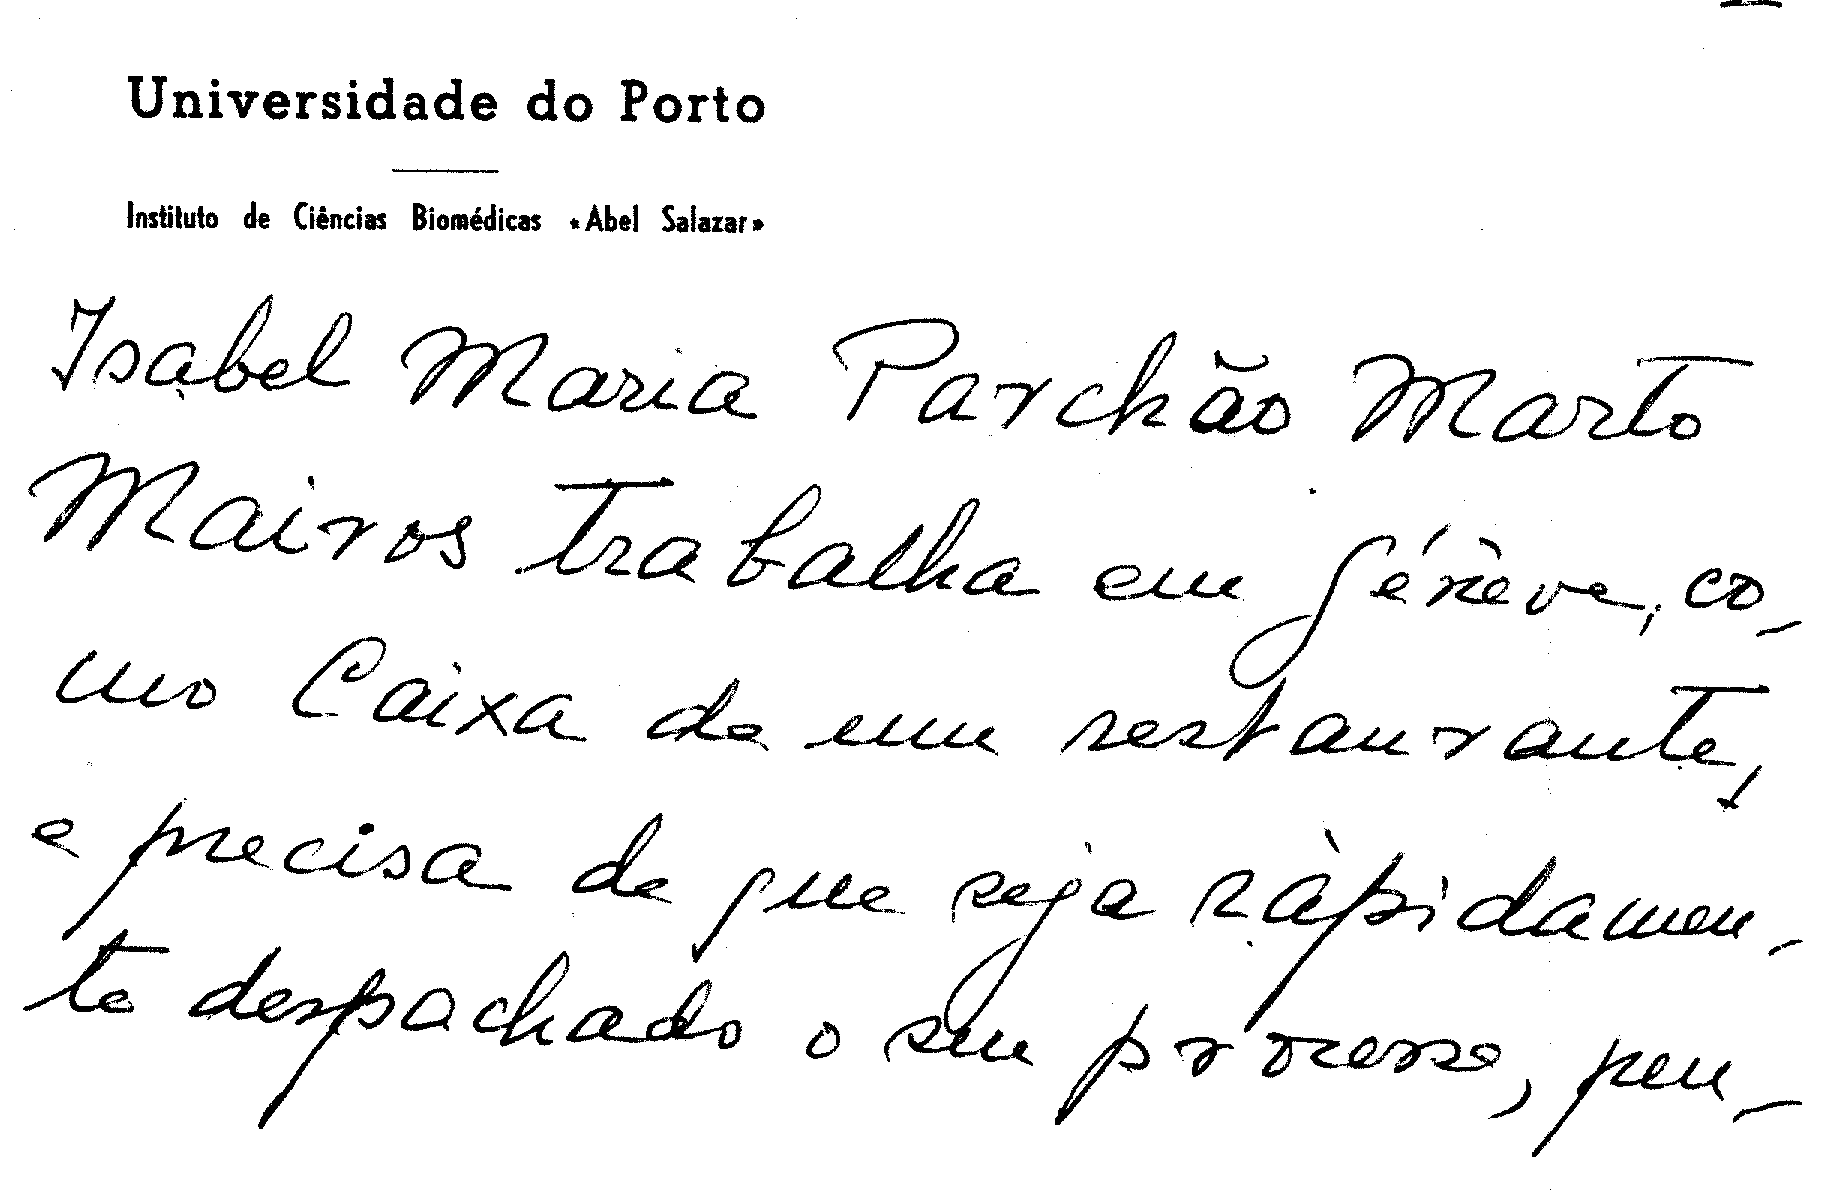 Universidade do Porto
Instituto de Ciências Biomédicas «Abel Salazar»
Isabel Maria Parchão Marto
Mairos trabalha em Génève, co-
mo Caixa de um restaurante,
e precisa de que seja ràpidamen-
te despachado o seu processo, pen-